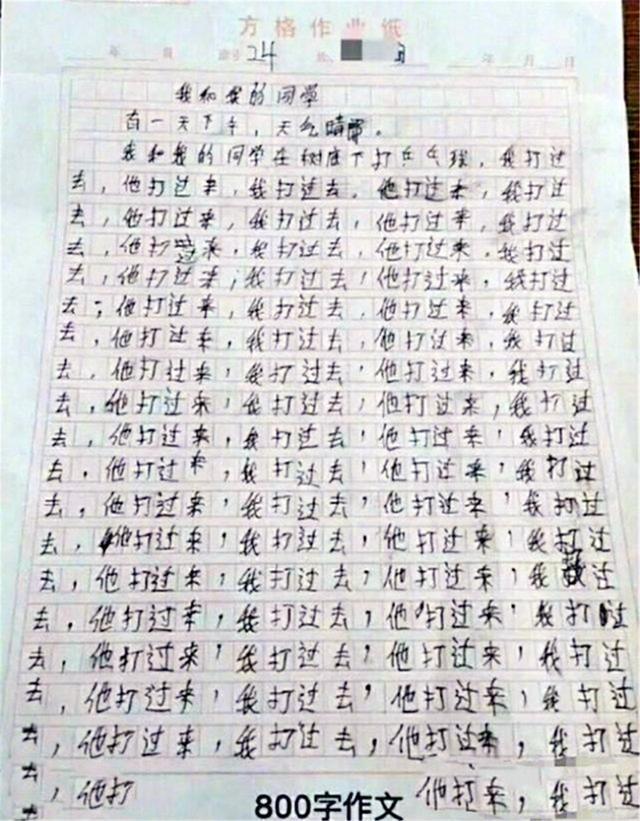 方格作业纸
年 月 24 3 年 月 日
我和我的同学
有一天下午，天气晴。
我和我的同学在树底下打乒乓球，我打过
去，他打过来，我打过去，他打过来，我打过
去，他打过来，我打过去，他打过来，我打过
去，他打过来，我打过去，他打过来，我打过
去，他打过来，我打过去，他打过来，我打过
去，他打过来，我打过去，他打过来，我打过
去，他打过来，我打过去，他打过来，我打过
去，他打过来，我打过去，他打过来，我打过
去，他打过来，我打过去，他打过来，我打过
去，他打过来，我打过去，他打过来，我打过
去，他打过来，我打过去，他打过来，我打过
去，他打过来，我打过去，他打过来，我打过
去，他打过来，我打过去，他打过来，我打过
去，他打过来，我打过去，他打过来，我过
去，他打过来，我打过去，他打过来，我打过
去，他打过来，我打过去，他打过来，我打过
去，他打过来，我打过去，他打过来，我打过
去，他打过来，我打过去，他打过来，我打过
去，他打 他打来，我打过
800字作文